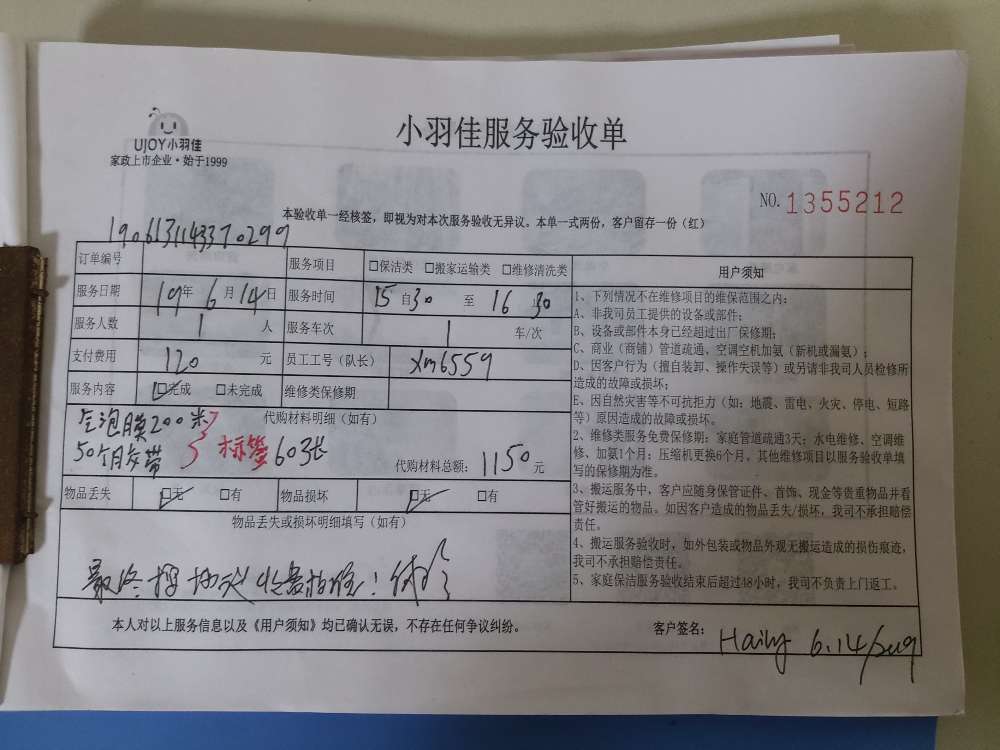 UJOY小羽佳
家政上市企业·始于1999
小羽佳服务验收单
NO. 1355212
本验收单一经核签，即视为对本次服务验收无异议。本单一式两份，客户留存一份（红）
订单编号 1906131143370299
服务项目 □保洁类 □搬家运输类 □维修清洗类
服务日期 19年6月14日
服务时间 15自30至16 30
服务人数 1 人
服务车次 1 车/次
支付费用 120 元
员工工号（队长） xm6559
服务内容 ☑完成 □未完成
维修类保修期
代购材料明细（如有）
气泡膜200米
50个胶带 标签603张
代购材料总额：1150元
物品丢失 ☑无 □有
物品损坏 ☑无 □有
物品丢失或损坏明细填写（如有）
最终
本人对以上服务信息以及《用户须知》均已确认无误，不存在任何争议纠纷。
客户签名： Haily 6.14/2019
用户须知
1、下列情况不在维修项目的维保范围之内：
A、非我司员工提供的设备或部件；
B、设备或部件本身已经超过出厂保修期；
C、商业（商铺）管道疏通、空调空机加氨（新机或漏氨）；
D、因客户行为（擅自装卸、操作失误等）或另请非我司人员检修所
造成的故障或损坏；
E、因自然灾害等不可抗拒力（如：地震、雷电、火灾、停电、短路
等）原因造成的故障或损坏。
2、维修类服务免费保修期：家庭管道疏通3天；水电维修、空调维
修、加氨1个月；压缩机更换6个月，其他维修项目以服务验收单填
写的保修期为准。
3、搬运服务中，客户应随身保管证件、首饰、现金等贵重物品并看
管好搬运的物品。如因客户造成的物品丢失/损坏，我司不承担赔偿
责任。
4、搬运服务验收时，如外包装或物品外观无搬运造成的损伤痕迹，
我司不承担赔偿责任。
5、家庭保洁服务验收结束后超过48小时，我司不负责上门返工。